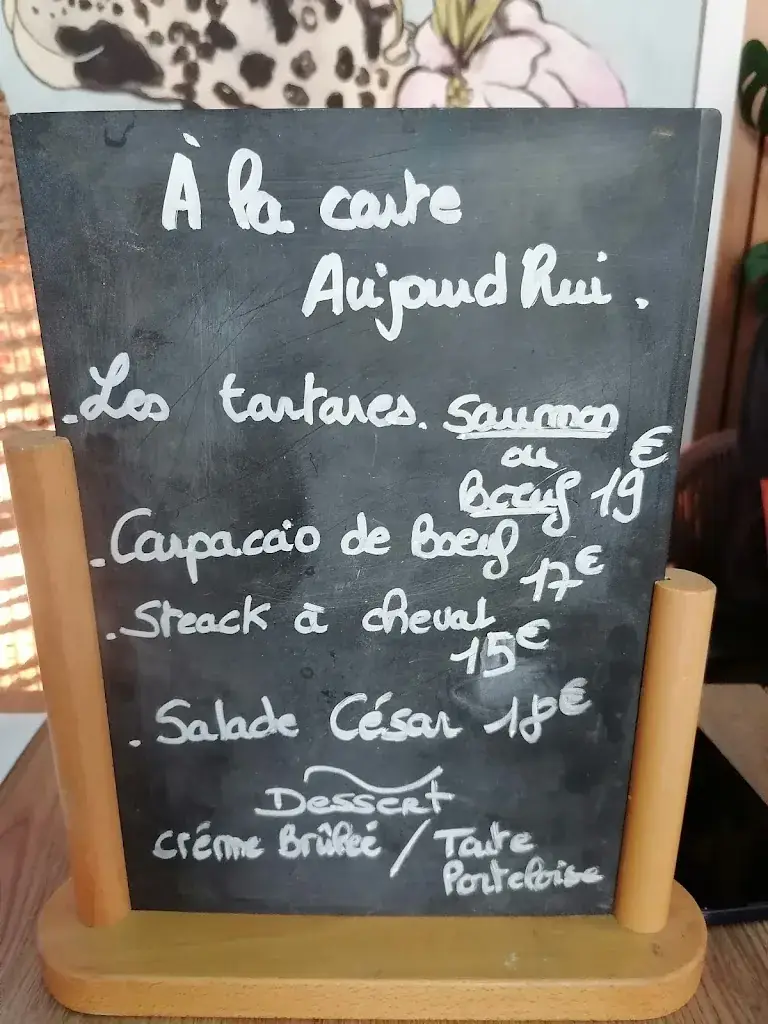 À la carte
Aujourd'hui.
. Les tartares. Saumon
ou
Boeuf 19€
. Carpaccio de Boeuf
17€
. Steack à cheval
15€
. Salade César 18€
Dessert
Crème Brûlée / Tarte
Porteloise